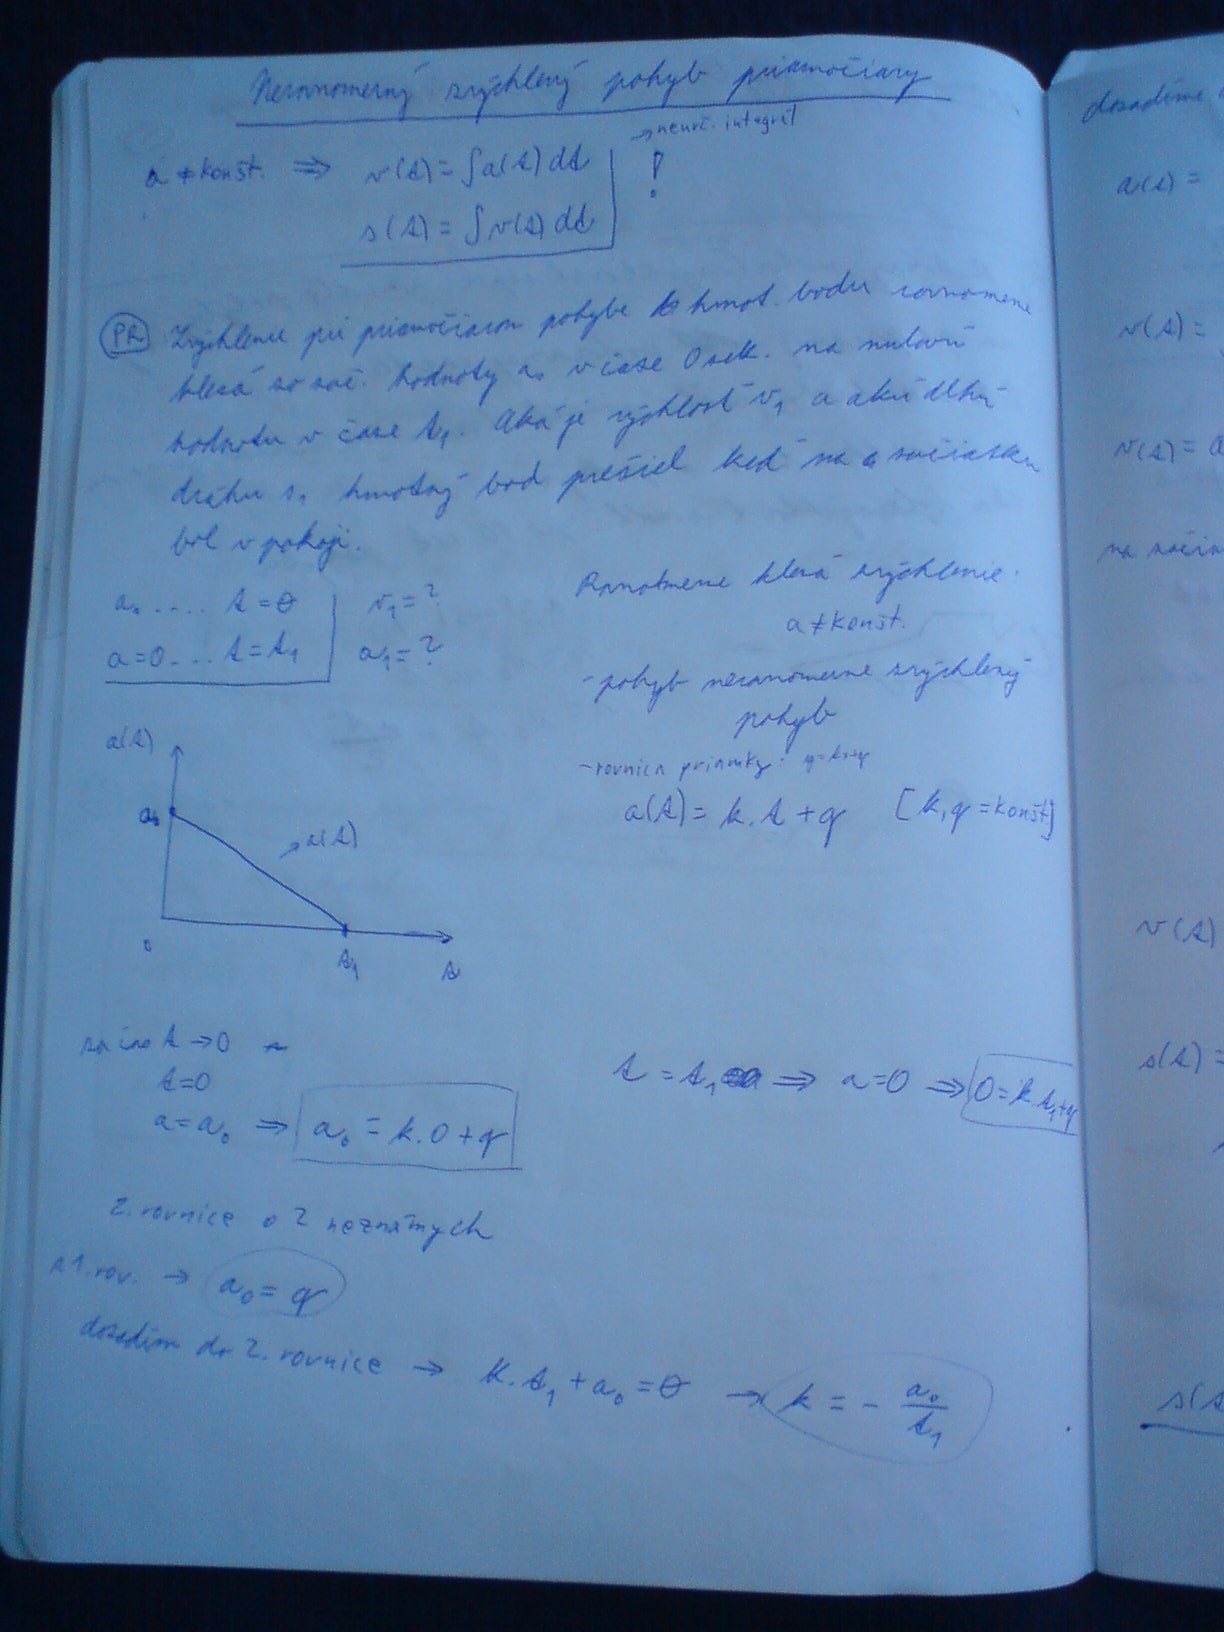 Nerovnomerný zrýchlený pohyb priamočiary
→ neurč. integrál
a ≠ konšt. ⇒ v(t) = ∫a(t) dt !
s(t) = ∫v(t) dt
PR Zrýchlenie pri priamočiarom pohybe hmot. bodu rovnomerne
klesá zo zač. hodnoty a₀ v čase 0 sek. na nulovú
hodnotu v čase t₁. Aká je rýchlosť v₁ a akú dlhú
dráhu s₁ hmotný bod prešiel keď na začiatku
bol v pokoji.
a₀ .... t = 0 v₁ = ?
a = 0 ... t = t₁ a₁ = ?
Rovnomerne klesá zrýchlenie.
a ≠ konšt.
- pohyb nerovnomerne zrýchlený
pohyb
- rovnica priamky: y=kx+q
a(t) = k.t + q [k,q = konšt]
a(t)
a₀
a(t)
0
t₁
t
za čas t → 0
t=0
a=a₀ ⇒ a₀ = k.0 + q
t = t₁ ⇒ a=0 ⇒ 0=k.t₁+q
2. rovnice o 2 neznámych
z 1. rov. → a₀ = q
dosadím do 2. rovnice → k.t₁ + a₀ = 0 → k = - a₀/t₁
dosadíme
a(t) =
v(t) =
v(t) =
na začia
v(t)
s(t) =